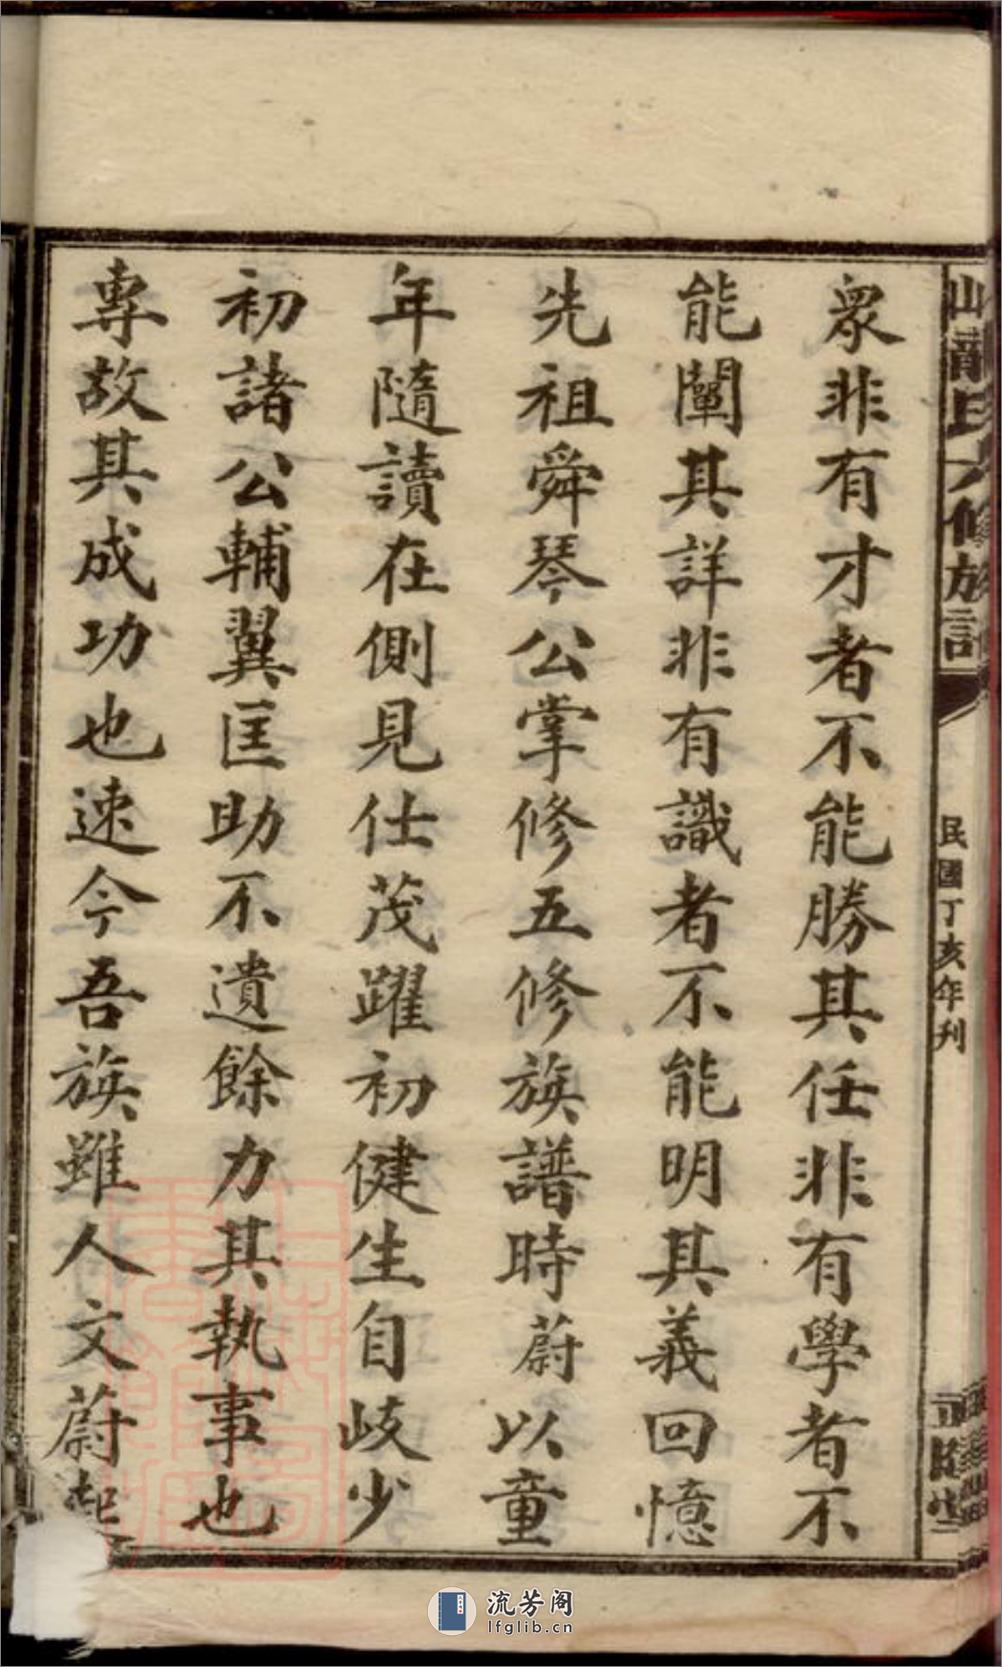 眾非有才者不能勝其任非有學者不
能闡其詳非有識者不能明其義回憶
先祖舜琴公掌修五修族譜時蔚以童
年隨讀在側見仕茂躍初健生自歧少
初諸公輔翼匡助不遺餘力其執事也
專故其成功也速今吾族雖人文蔚起
氏六修族
民國丁亥年刊
流芳阁
lfglib.cn